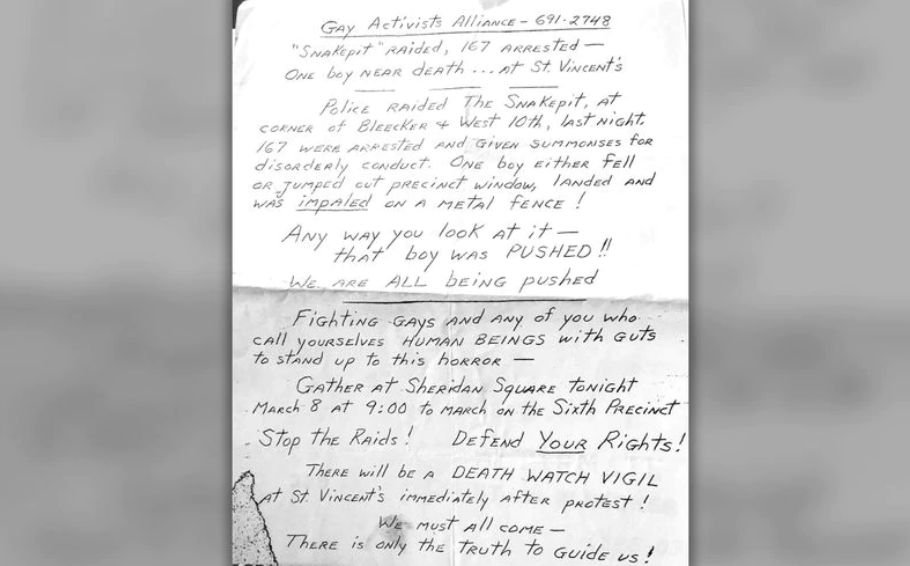 GAY ACTIVISTS ALLIANCE - 691-2748
"SNAKEPIT" RAIDED, 167 ARRESTED —
ONE boy NEAR DEATH ... AT ST. VINCENT'S
POLICE RAIDED THE SNAKEPIT, AT
CORNER of BLEECKER & WEST 10th, last night.
167 WERE ARRESTED AND GIVEN SUMMONSES FOR
disorderly conduct. ONE boy EITHER fell
OR JUMPED out PRECINCT window, lANDED AND
WAS impaled ON A METAL FENCE!
ANY WAY you look AT it —
that boy was PUSHED!!
WE ARE ALL being pushed
FIGHTING GAYS AND ANY of you who
CALL yourselves HUMAN BEINGS with GUTS
to STAND up to this HORROR —
GATHER AT SHERIDAN SQUARE TONIGHT
MARCH 8 AT 9:00 to MARCH ON the SIXTH PRECINCT
Stop the Raids! DEFEND YOUR Rights!
THERE will bE A DEATH WATCH VIGIL
AT ST. VINCENT'S immediately AFTER PROTEST!
WE MUST All COME —
THERE is only the TRUTH to GUIDE us!